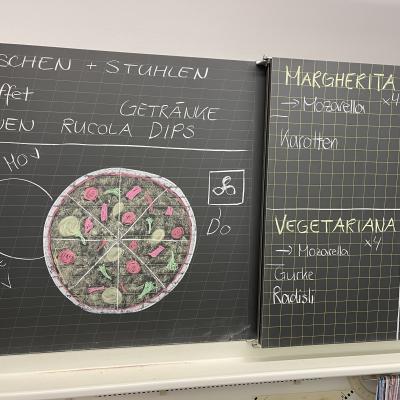 SCHEN + STÜHLEN
ffet
GETRÄNKE
UEN RUCOLA DIPS
MO✓
Do
✓
MARGHERITA
→ Mozarella x4
Karotten
VEGETARIANA
→ Mozarella x4
Gurke
Radisli